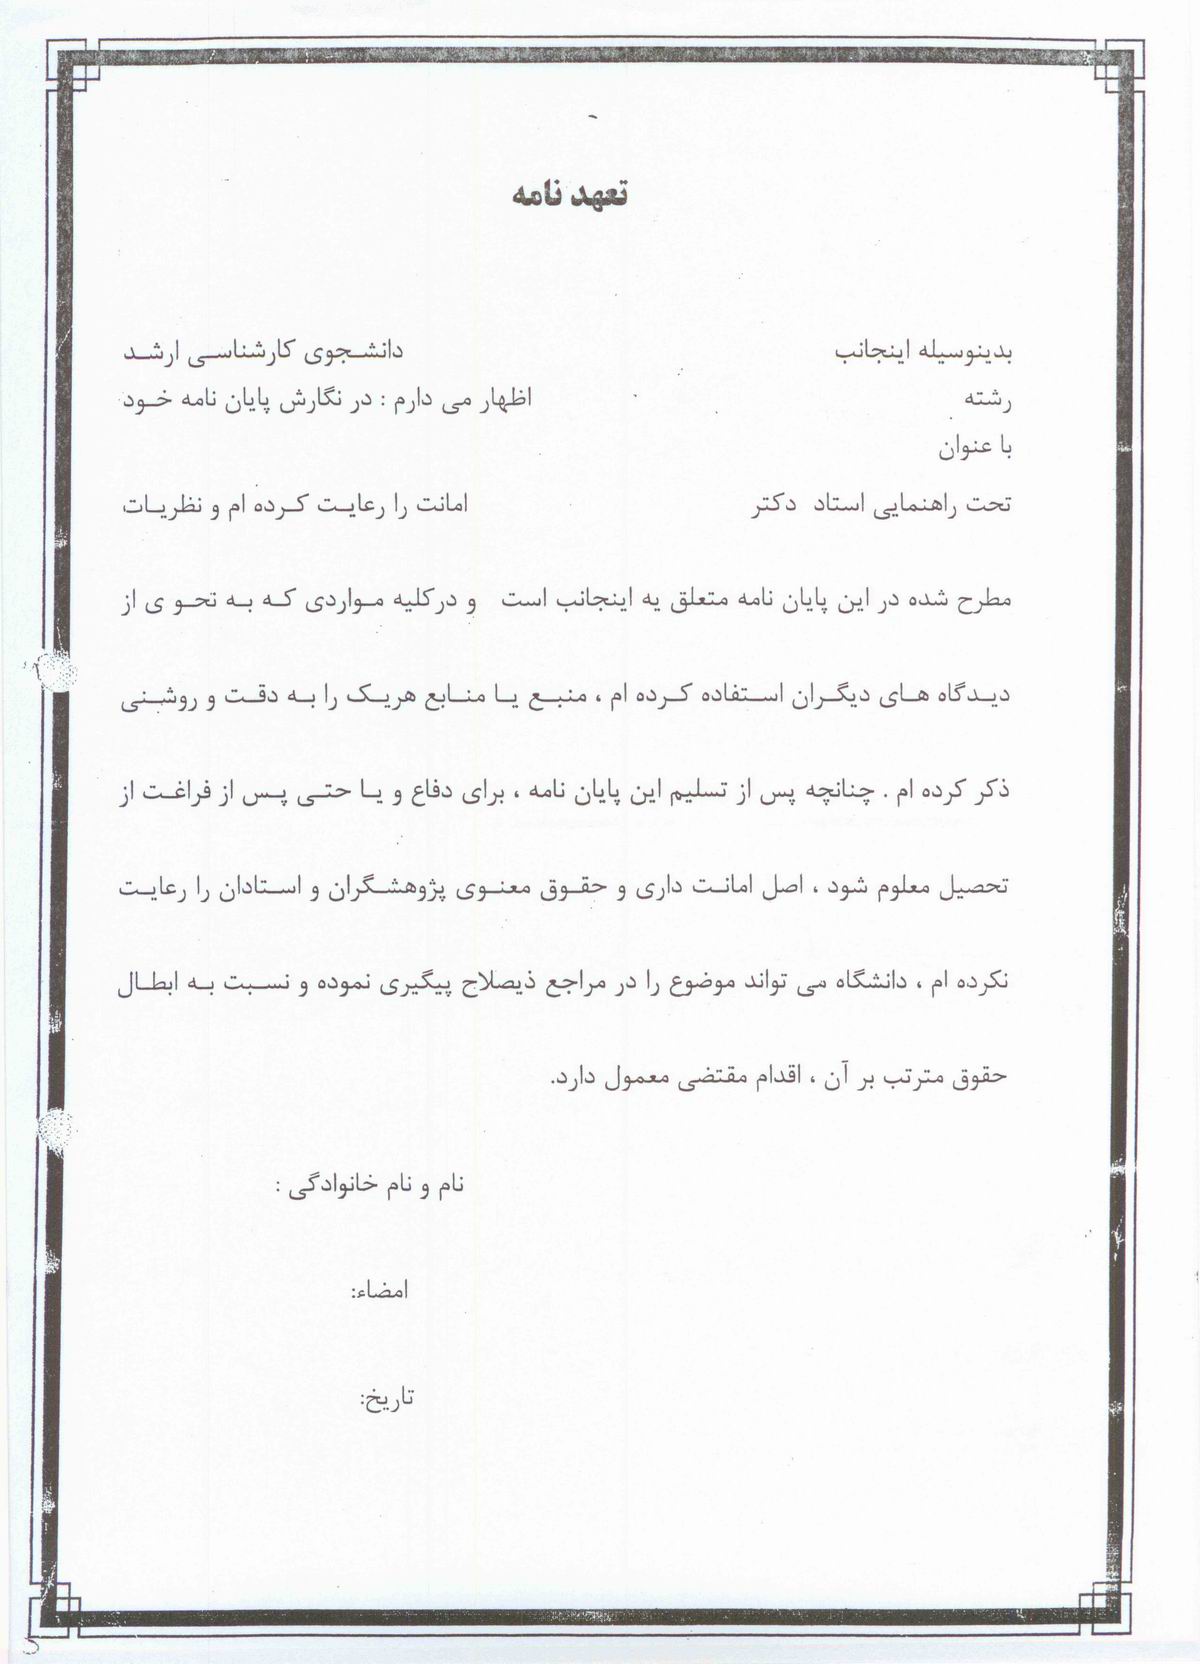 تعهد نامه
بدینوسیله اینجانب دانشجوی کارشناسی ارشد
رشته اظهار می دارم : در نگارش پایان نامه خود
با عنوان
تحت راهنمایی استاد دکتر امانت را رعایت کرده ام و نظریات
مطرح شده در این پایان نامه متعلق یه اینجانب است و درکلیه مواردی که به تحو ی از
دیدگاه های دیگران استفاده کرده ام ، منبع یا منابع هریک را به دقت و روشنی
ذکر کرده ام . چنانچه پس از تسلیم این پایان نامه ، برای دفاع و یا حتی پس از فراغت از
تحصیل معلوم شود ، اصل امانت داری و حقوق معنوی پژوهشگران و استادان را رعایت
نکرده ام ، دانشگاه می تواند موضوع را در مراجع ذیصلاح پیگیری نموده و نسبت به ابطال
حقوق مترتب بر آن ، اقدام مقتضی معمول دارد.
نام و نام خانوادگی :
امضاء:
تاریخ: